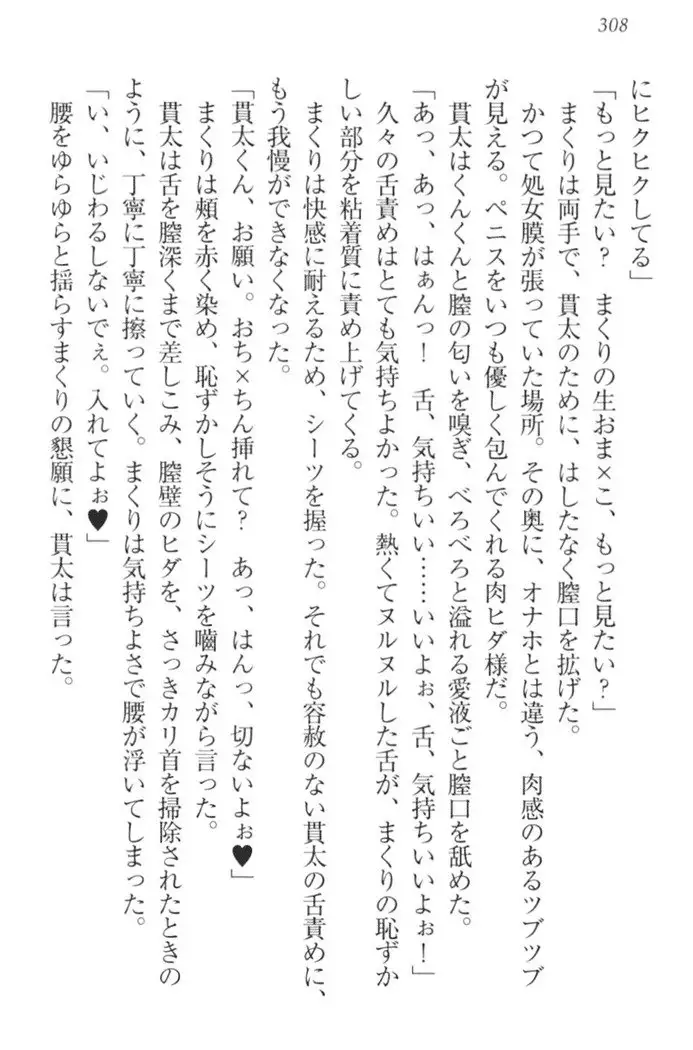 308
にヒクヒクしてる」
「もっと見たい？　まくりの生おま×こ、もっと見たい？」
　まくりは両手で、貫太のために、はしたなく膣口を拡げた。
　かつて処女膜が張っていた場所。その奥に、オナホとは違う、肉感のあるツブツブ
が見える。ペニスをいつも優しく包んでくれる肉ヒダ様だ。
　貫太はくんくんと膣の匂いを嗅ぎ、べろべろと溢れる愛液ごと膣口を舐めた。
「あっ、あっ、はぁんっ！　舌、気持ちいい……いいよぉ、舌、気持ちいいよぉ！」
　久々の舌責めはとても気持ちよかった。熱くてヌルヌルした舌が、まくりの恥ずか
しい部分を粘着質に責め上げてくる。
　まくりは快感に耐えるため、シーツを握った。それでも容赦のない貫太の舌責めに、
もう我慢ができなくなった。
「貫太くん、お願い。おち×ちん挿れて？　あっ、はんっ、切ないよぉ♥」
　まくりは頬を赤く染め、恥ずかしそうにシーツを嚙みながら言った。
　貫太は舌を膣深くまで差しこみ、膣壁のヒダを、さっきカリ首を掃除されたときの
ように、丁寧に丁寧に擦っていく。まくりは気持ちよさで腰が浮いてしまった。
「い、いじわるしないでぇ。入れてよぉ♥」
　腰をゆらゆらと揺らすまくりの懇願に、貫太は言った。